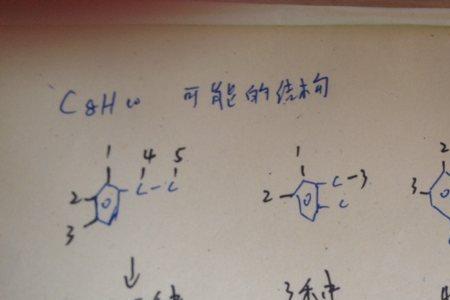 C8H10 可能的结构
1 4 5 1 2
2 C-C 2 C-3 3
3 C
3种